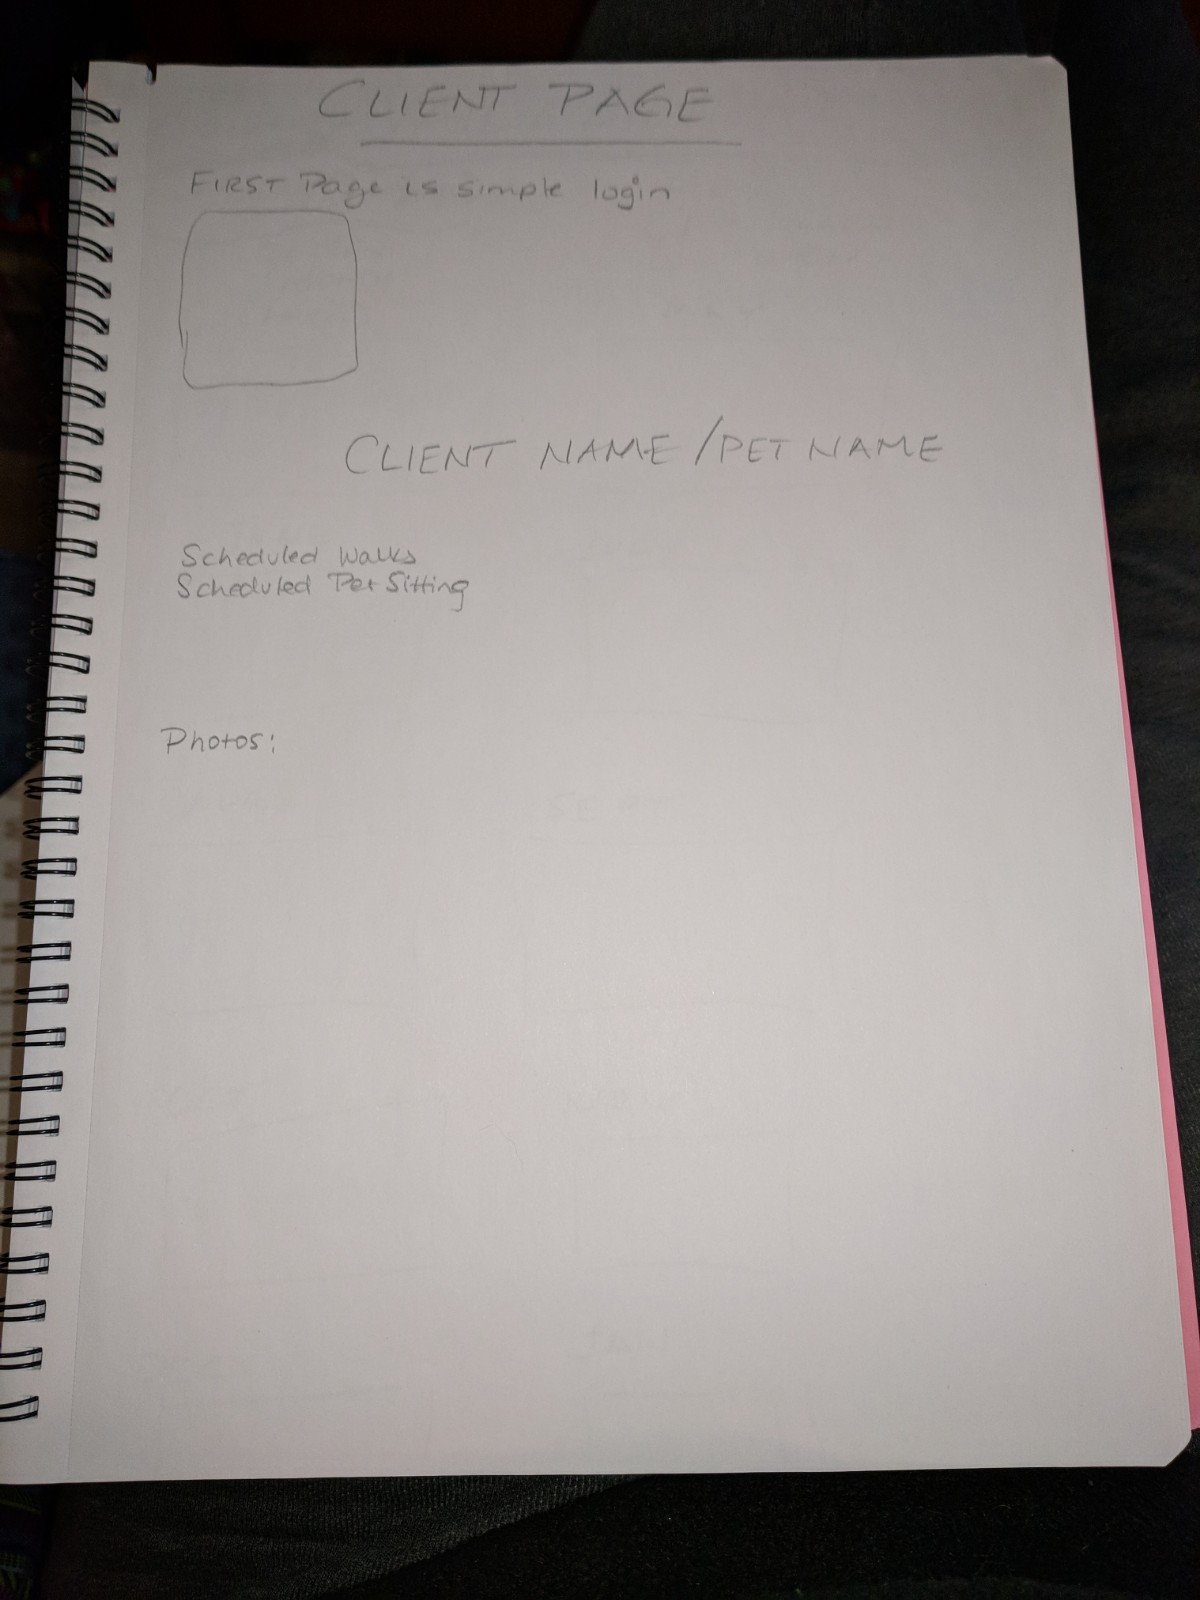 CLIENT PAGE
FIRST Page is simple login
CLIENT NAME / PET NAME
Scheduled Walks
Scheduled Pet Sitting
Photos: